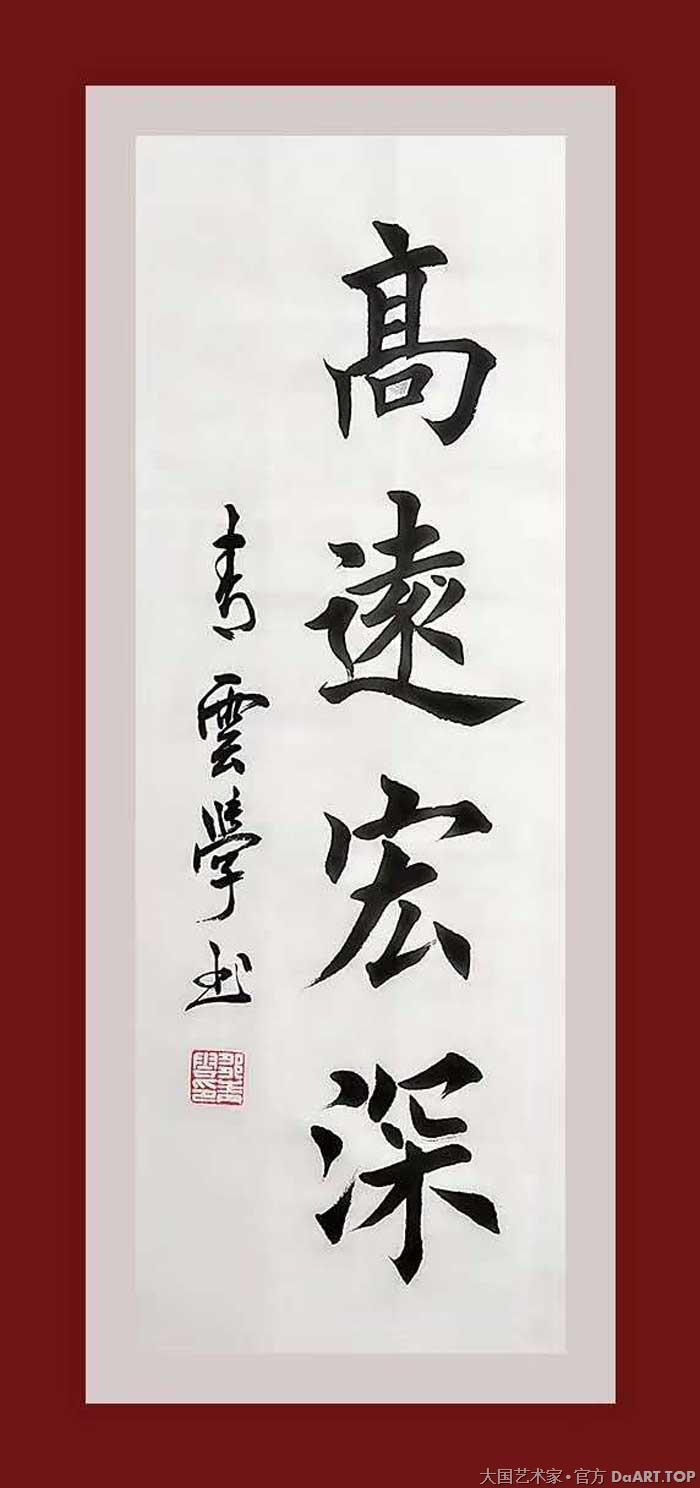 髙遠宏深
青雲學书
大国艺术家•官方 DaART.TOP